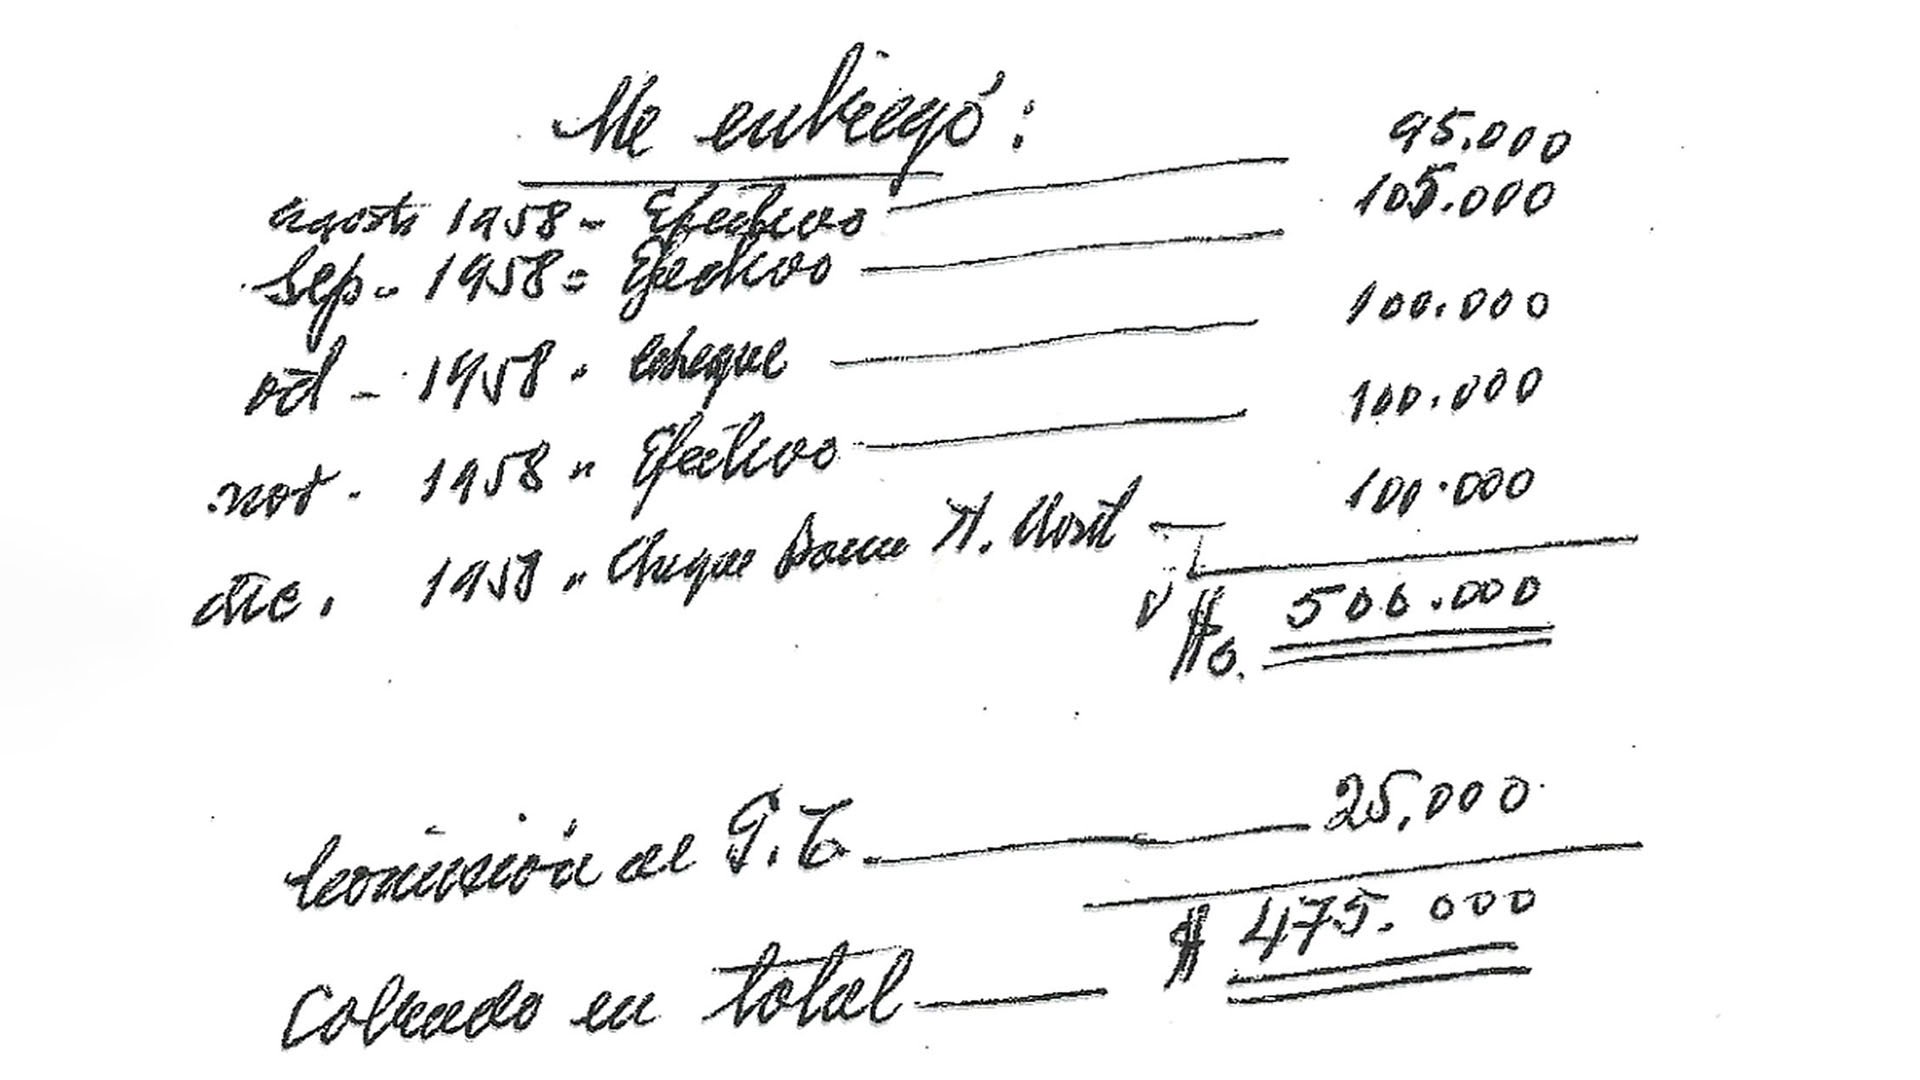 Me entregó:
agosto 1958 - Efectivo 95.000
Sep. 1958 = Efectivo 105.000
oct - 1958 - Cheque 100.000
nov. 1958 - Efectivo 100.000
dic. 1958 - Cheque 100.000
$ 500.000
Comisión al 25.000
Cobrado en total $ 475.000